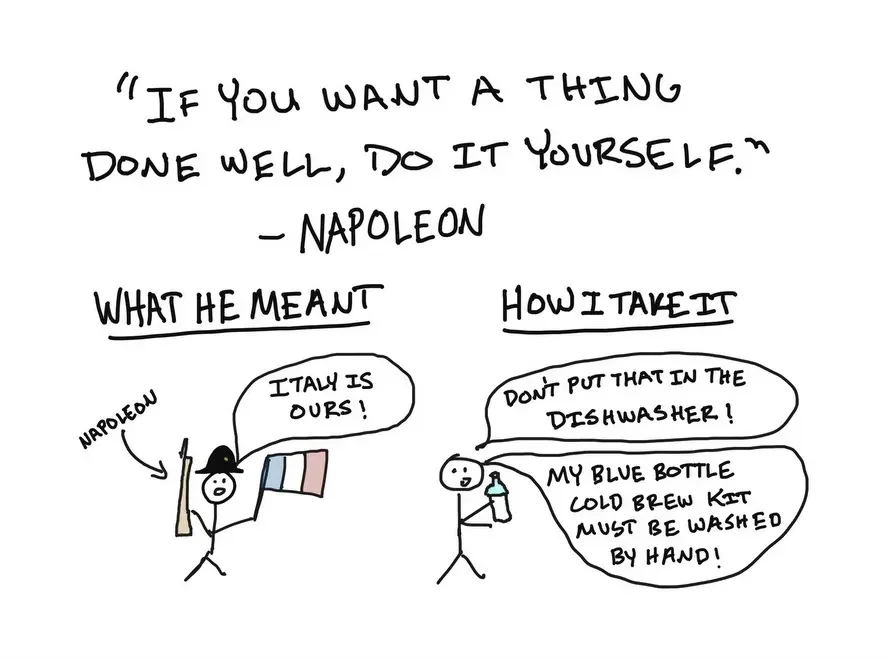 "IF YOU WANT A THING
DONE WELL, DO IT YOURSELF."
– NAPOLEON
WHAT HE MEANT
NAPOLEON
ITALY IS
OURS!
HOW I TAKE IT
DON'T PUT THAT IN THE
DISHWASHER!
MY BLUE BOTTLE
COLD BREW KIT
MUST BE WASHED
BY HAND!